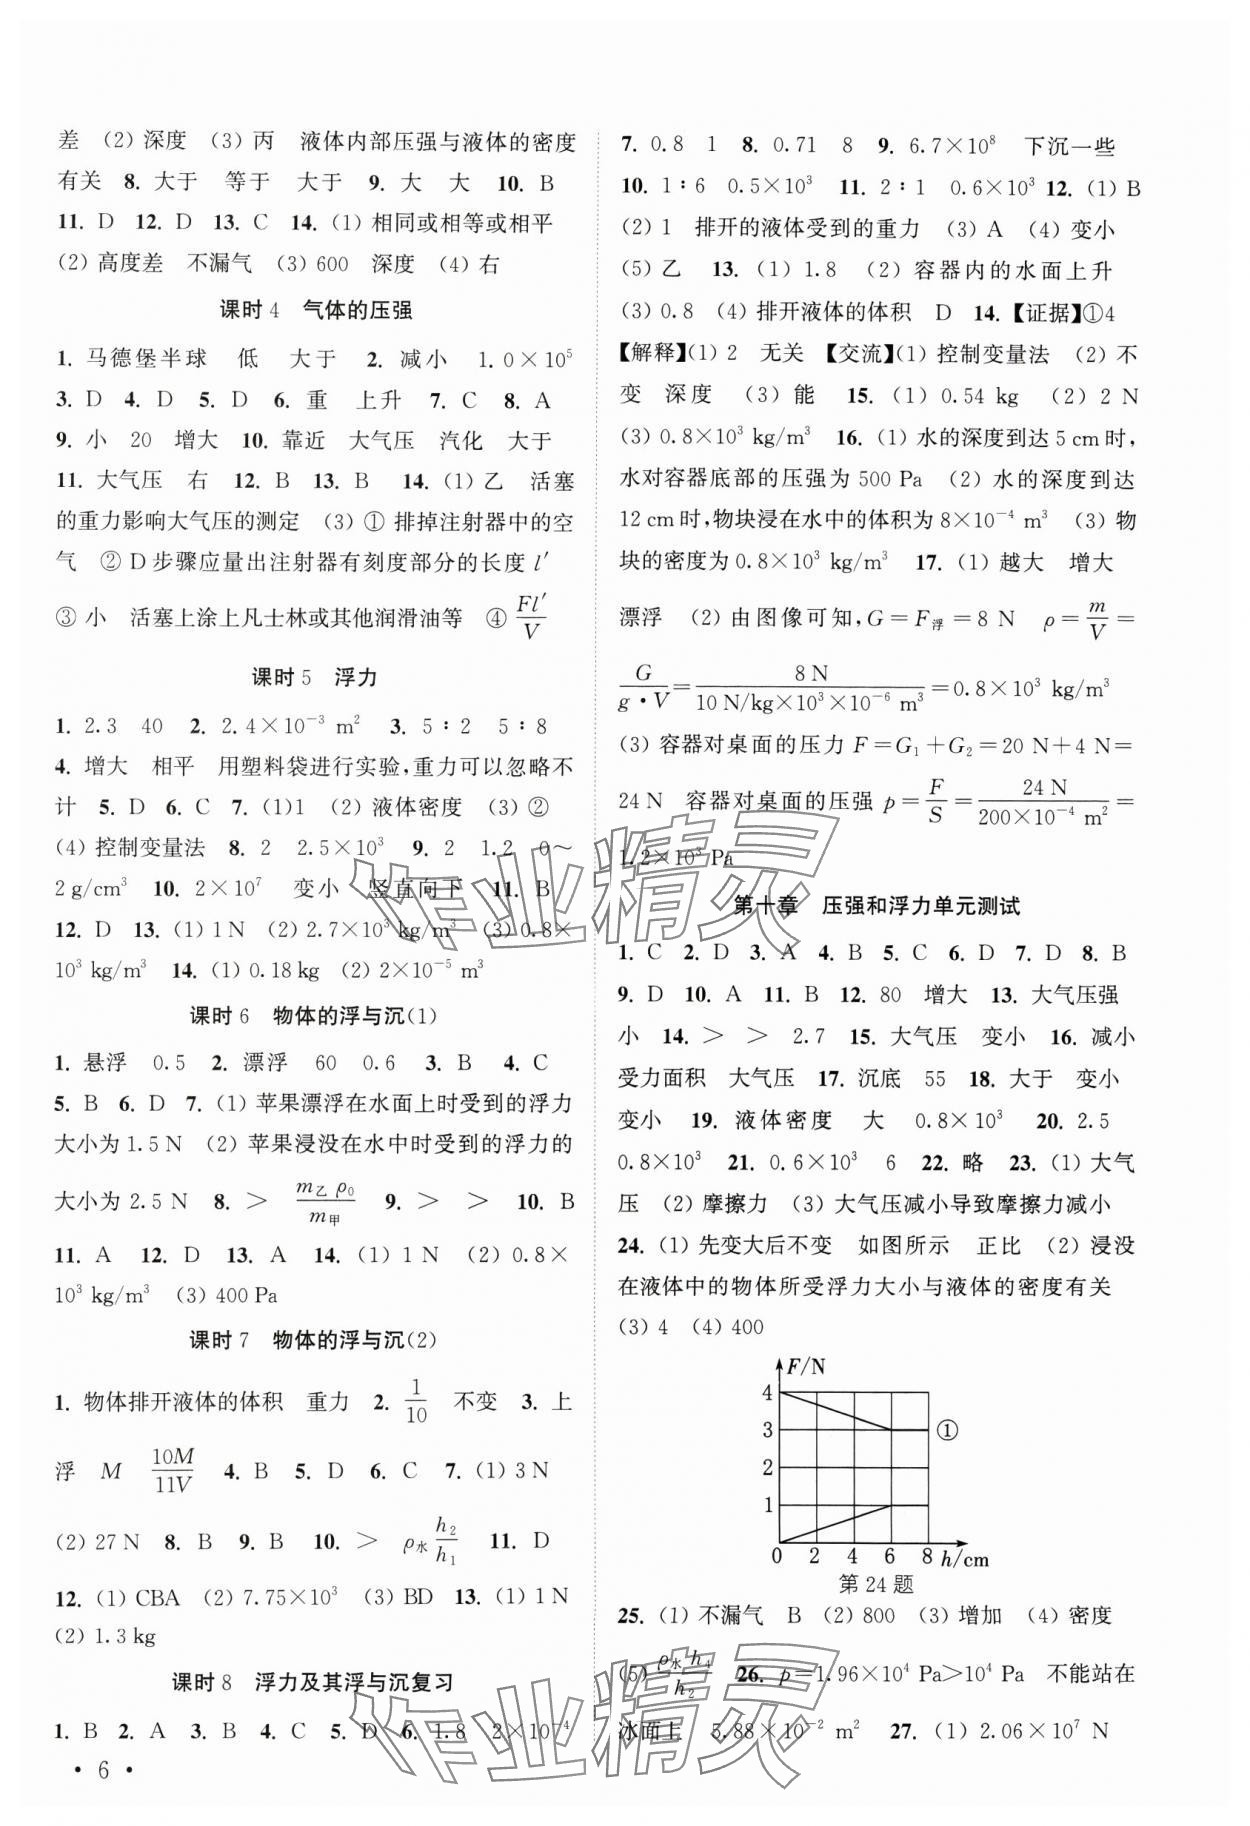 差　(2) 深度　(3) 丙　液体内部压强与液体的密度
有关　8. 大于　等于　大于　9. 大　大　10. B
11. D　12. D　13. C　14. (1) 相同或相等或相平
(2) 高度差　不漏气　(3) 600　深度　(4) 右
课时 4　气体的压强
1. 马德堡半球　低　大于　2. 减小　1.0×10⁵
3. D　4. D　5. D　6. 重　上升　7. C　8. A
9. 小　20　增大　10. 靠近　大气压　汽化　大于
11. 大气压　右　12. B　13. B　14. (1) 乙　活塞
的重力影响大气压的测定　(3) ① 排掉注射器中的空
气　② D 步骤应量出注射器有刻度部分的长度 l′
③ 小　活塞上涂上凡士林或其他润滑油等　④ Fl′/V
课时 5　浮力
1. 2.3　40　2. 2.4×10⁻³ m²　3. 5∶2　5∶8
4. 增大　相平　用塑料袋进行实验,重力可以忽略不
计　5. D　6. C　7. (1)1　(2) 液体密度　(3) ②
(4) 控制变量法　8. 2　2.5×10³　9. 2　1.2　0～
2 g/cm³　10. 2×10⁷　变小　竖直向下　11. B
12. D　13. (1) 1 N　(2) 2.7×10³ kg/m³　(3) 0.8×
10³ kg/m³　14. (1) 0.18 kg　(2) 2×10⁻⁵ m³
课时 6　物体的浮与沉(1)
1. 悬浮　0.5　2. 漂浮　60　0.6　3. B　4. C
5. B　6. D　7. (1) 苹果漂浮在水面上时受到的浮力
大小为 1.5 N　(2) 苹果浸没在水中时受到的浮力的
大小为 2.5 N　8. ＞　m乙ρ₀/m甲　9. ＞　＞　10. B
11. A　12. D　13. A　14. (1) 1 N　(2) 0.8×
10³ kg/m³　(3) 400 Pa
课时 7　物体的浮与沉(2)
1. 物体排开液体的体积　重力　2. 1/10　不变　3. 上
浮　M　10M/11V　4. B　5. D　6. C　7. (1) 3 N
(2) 27 N　8. B　9. B　10. ＞　ρ水 h₂/h₁　11. D
12. (1) CBA　(2) 7.75×10³　(3) BD　13. (1) 1 N
(2) 1.3 kg
课时 8　浮力及其浮与沉复习
1. B　2. A　3. B　4. C　5. D　6. 1.8　2×10⁻⁴
• 6 •
7. 0.8　1　8. 0.71　8　9. 6.7×10⁸　下沉一些
10. 1∶6　0.5×10³　11. 2∶1　0.6×10³　12. (1) B
(2) 1　排开的液体受到的重力　(3) A　(4) 变小
(5) 乙　13. (1) 1.8　(2) 容器内的水面上升
(3) 0.8　(4) 排开液体的体积　D　14.【证据】①4
【解释】(1) 2　无关　【交流】(1) 控制变量法　(2) 不
变　深度　(3) 能　15. (1) 0.54 kg　(2) 2 N
(3) 0.8×10³ kg/m³　16. (1) 水的深度到达 5 cm 时,
水对容器底部的压强为 500 Pa　(2) 水的深度到达
12 cm 时,物块浸在水中的体积为 8×10⁻⁴ m³　(3) 物
块的密度为 0.8×10³ kg/m³　17. (1) 越大　增大
漂浮　(2) 由图像可知,G＝F浮＝8 N　ρ＝m/V＝
G/(g·V)＝8 N/(10 N/kg×10³×10⁻⁶ m³)＝0.8×10³ kg/m³
(3) 容器对桌面的压力 F＝G₁＋G₂＝20 N＋4 N＝
24 N　容器对桌面的压强 p＝F/S＝24 N/(200×10⁻⁴ m²)＝
1.2×10³ Pa
第十章　压强和浮力单元测试
1. C　2. D　3. A　4. B　5. C　6. D　7. D　8. B
9. D　10. A　11. B　12. 80　增大　13. 大气压强
小　14. ＞　＞　2.7　15. 大气压　变小　16. 减小
受力面积　大气压　17. 沉底　55　18. 大于　变小
变小　19. 液体密度　大　0.8×10³　20. 2.5
0.8×10³　21. 0.6×10³　6　22. 略　23. (1) 大气
压　(2) 摩擦力　(3) 大气压减小导致摩擦力减小
24. (1) 先变大后不变　如图所示　正比　(2) 浸没
在液体中的物体所受浮力大小与液体的密度有关
(3) 4　(4) 400
F/N
4
3　①
2
1
0　2　4　6　8　h/cm
第 24 题
25. (1) 不漏气　B　(2) 800　(3) 增加　(4) 密度
(5) ρ水h₄/h₂　26. p＝1.96×10⁴ Pa＞10⁴ Pa　不能站在
冰面上　5.88×10⁻² m²　27. (1) 2.06×10⁷ N
作业精灵
作业精灵